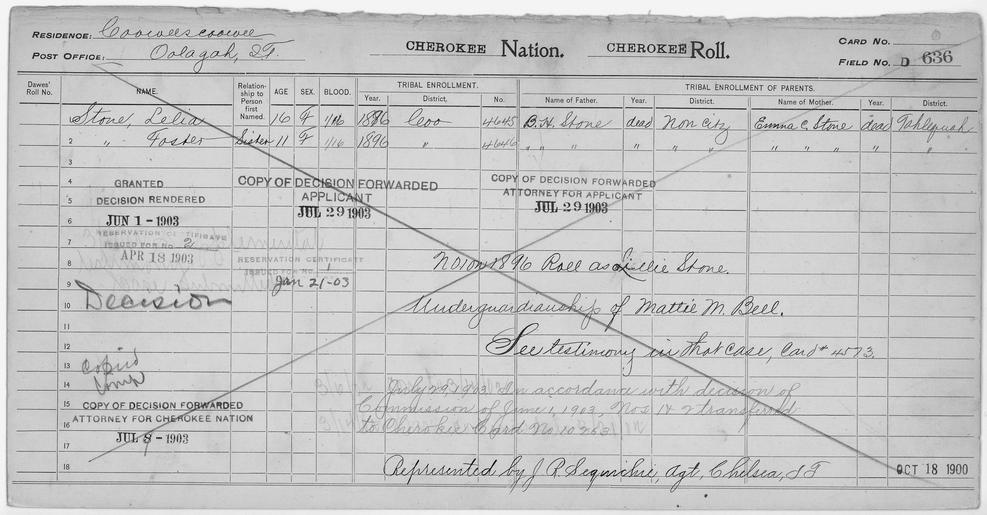 RESIDENCE: Coowees coowee
POST OFFICE: Oolagah, I.T.
CHEROKEE Nation. CHEROKEE Roll.
CARD NO.
FIELD NO. D 636
Dawes' Roll No. NAME. Relationship to Person first Named. AGE SEX. BLOOD. TRIBAL ENROLLMENT. Year. District. No. TRIBAL ENROLLMENT OF PARENTS. Name of Father. Year. District. Name of Mother. Year. District.
Stone, Lelia 16 F 1/16 1896 Coo 4645 B.H. Stone dead Non City Emma C. Stone dead Tahlequah
2 " Foster Sister 11 F 1/16 1896 " 4646 " " " " " " " " " " "
3
4 GRANTED
5 DECISION RENDERED
6 JUN 1 - 1903
COPY OF DECISION FORWARDED
APPLICANT
JUL 29 1903
COPY OF DECISION FORWARDED
ATTORNEY FOR APPLICANT
JUL 29 1903
7 RESERVATION CERTIFICATE
ISSUED FOR No. 2
APR 18 1903
RESERVATION CERTIFICATE
ISSUED FOR No. 1
Jan 21-03
8 No 1 on 1896 Roll as Lillie Stone.
9
10 Decision
Under guardianship of Mattie M. Bell.
11
12 See testimony in that case, Card # 4573.
13 Copied
14 Comp
July 29, 1903. In accordance with decision of
15 Commission of June 1, 1903, Nos 1 & 2 transferred
16 to Cherokee Card No
COPY OF DECISION FORWARDED
ATTORNEY FOR CHEROKEE NATION
JUL 8 - 1903
17
18 Represented by J.P. Sequichie, Agt, Chelsea, I T
OCT 18 1900